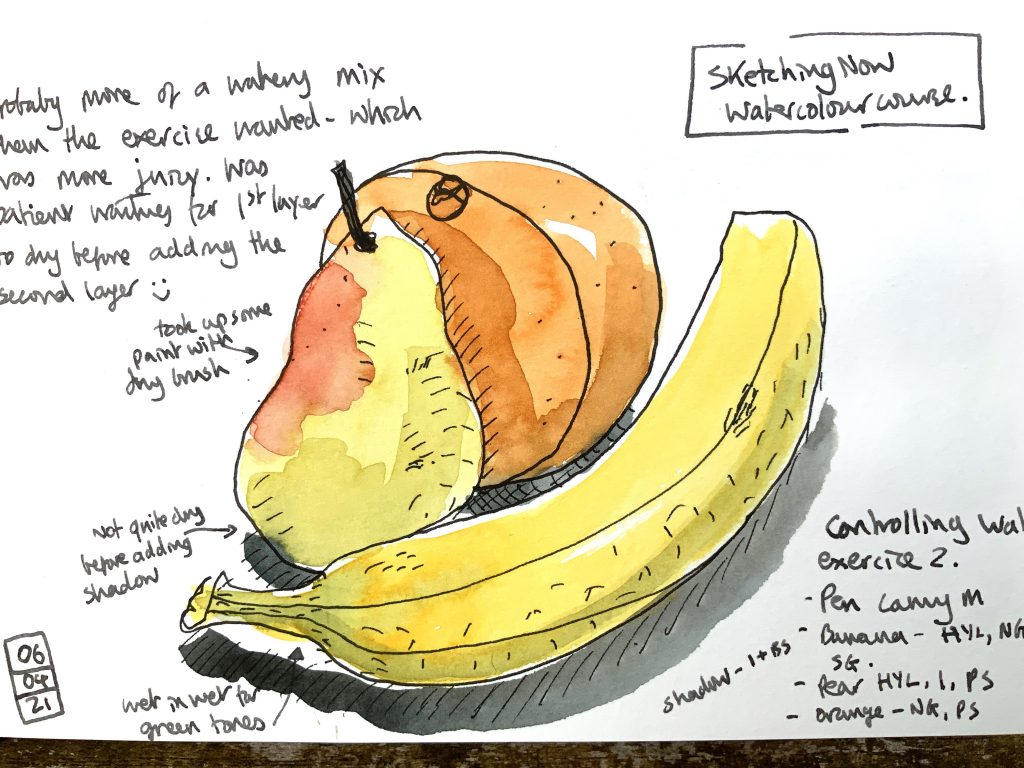 Sketching Now
watercolour course.
robably more of a watery mix
than the exercise wanted - which
was more juicy. Was
patient waiting for 1st layer
to dry before adding the
second layer :)
took up some
paint with
dry brush
Not quite dry
before adding
shadow
wet in wet for
green tones
06
04
21
shadow - I + BS
Controlling Wat
exercise 2.
- Pen Lamy M
- Banana - HYL, NG
SG.
- Pear HYL, I, PS
- Orange - NG, PS